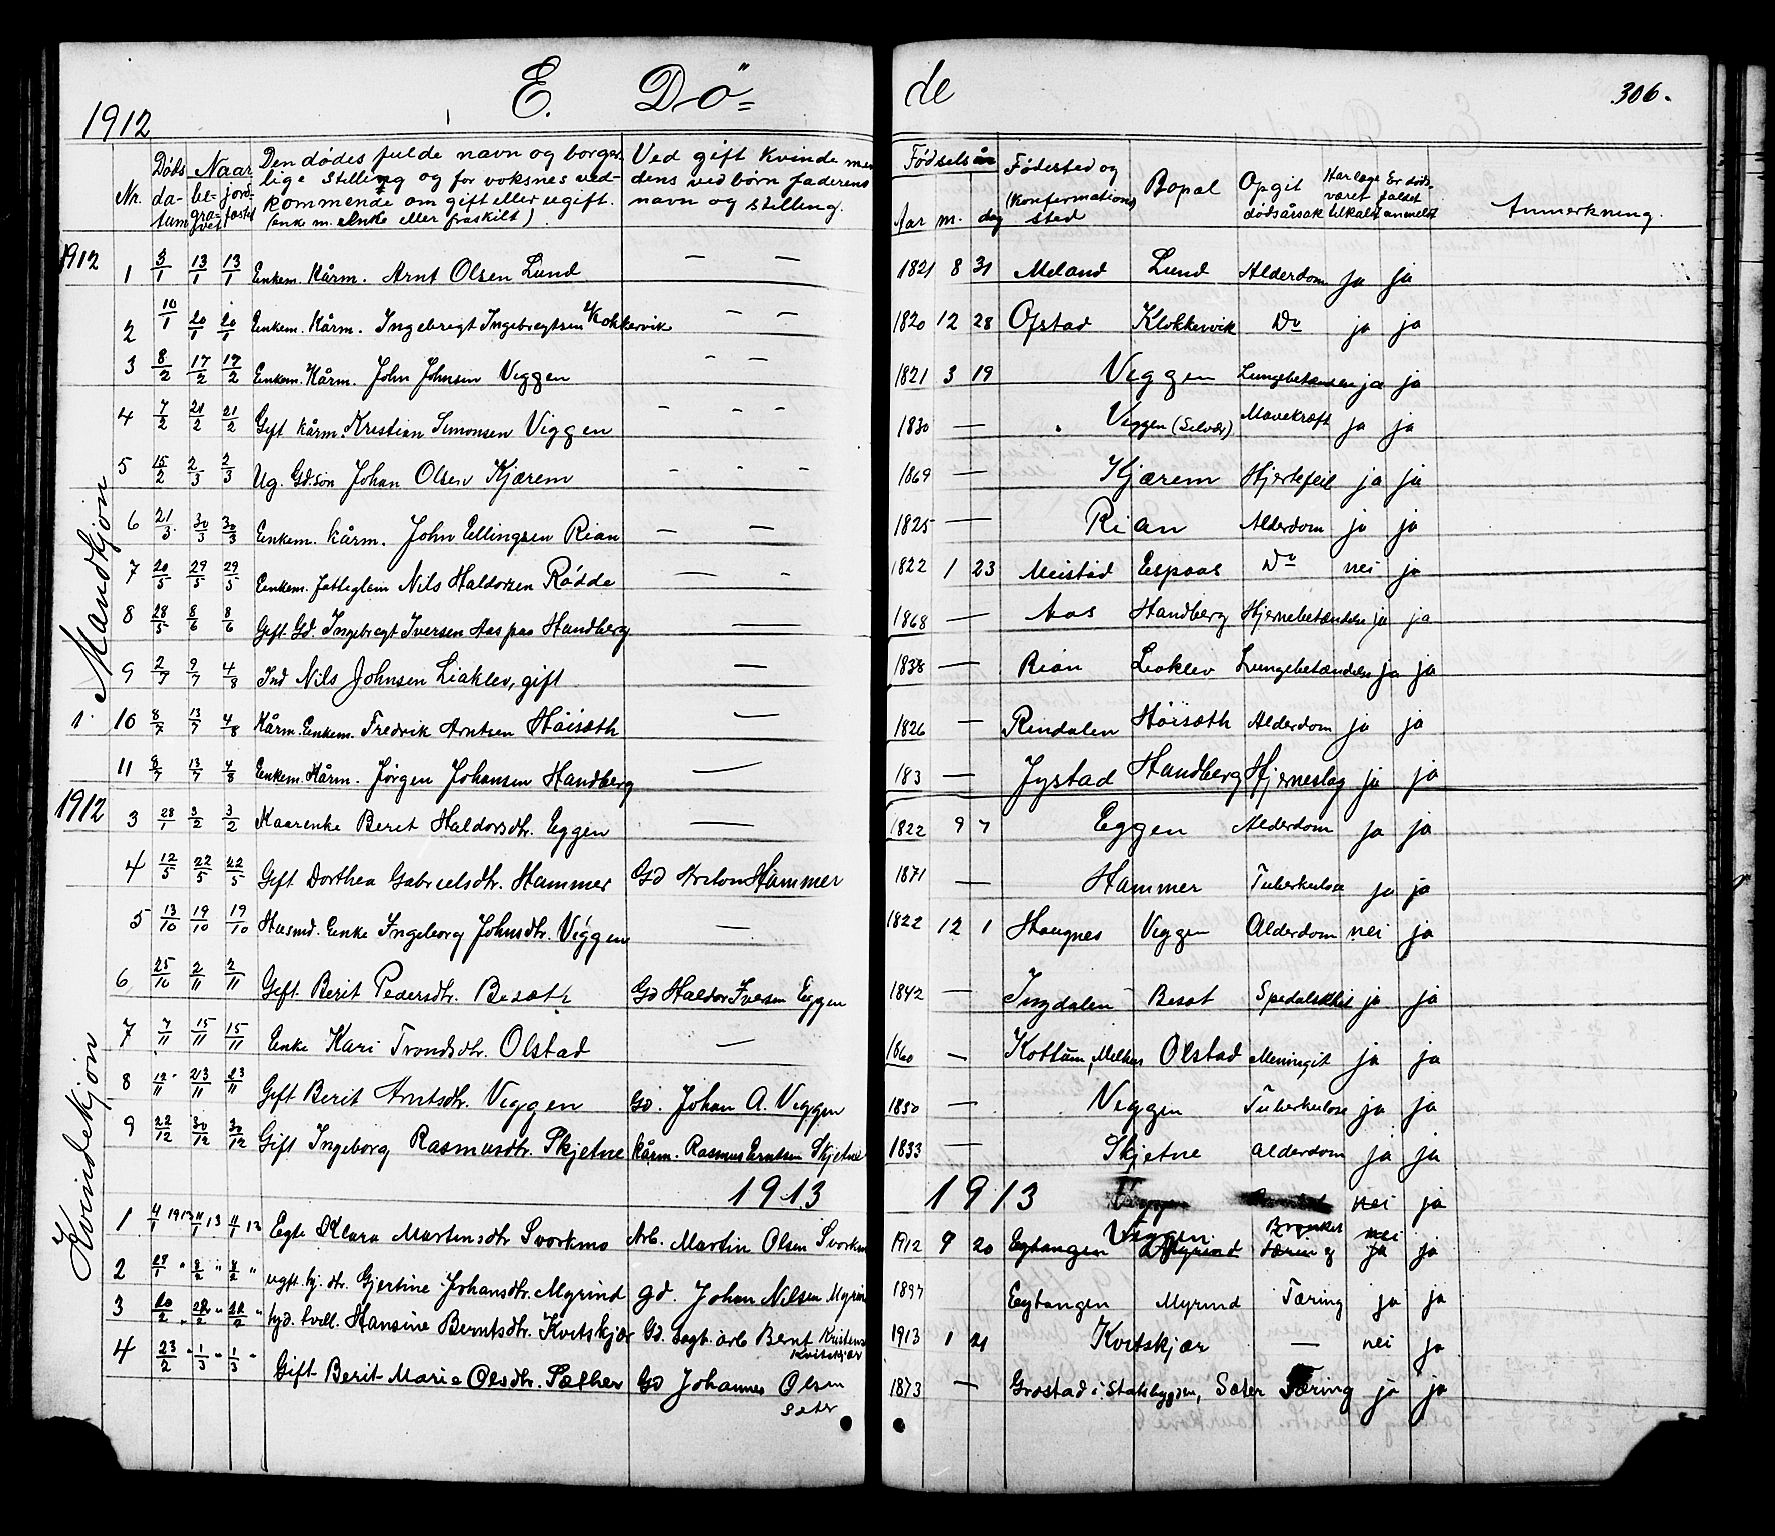 1912 E. Dö= de 306.
Nr. Døds datum Naar begravet jordfæstet Den dødes fulde navn og borger- Ved gift kvinde man Fødselsår Fødested og Bopæl Opgit Har læge Er døds- Anmerkning.
lige stilling og for voksnes ved- dens ved børn faderens (konfirmations) dødsårsak været faldet
kommende om gift eller ugift. navn og stilling. Aar m. dag sted tilkaldt anmeldt
(enke m. enke eller fraskilt)
Mandkjøn
1912 1 3/1 13/1 13/1 Enkem. Kårm. Arnt Olsen Lund — — 1821 8 31 Meland Lund Alderdom ja ja
2 10/1 20/1 20/1 Enkem. Kårm. Ingebregt Ingebregtsen Klokkervik — — 1820 12 28 Ofstad Klokkervik Do ja ja
3 8/2 17/2 17/2 Enkem. Kårm. John Johnsen Viggen — — 1821 3 19 Viggen Lungebetændelse ja ja
4 7/2 21/2 21/2 Gift kårm. Kristian Simonsen Viggen — — — 1830 — Viggen (Selvær) Mavekræft ja ja
5 15/2 2/3 2/3 Ug. Gd.søn Johan Olsen Kjærem — — — 1869 — Kjærem Hjertefeil ja ja
6 21/3 30/3 30/3 Enkem. kårm. John Ellingsen Rian — — 1825 — Rian Alderdom ja ja
7 20/5 29/5 29/5 Enkem. Fattiglem Nils Haldorsen Rødde — — 1822 1 23 Meistad Espaas Do nei ja
8 28/5 8/6 8/6 Gift Gd. Ingebregt Iversen Aaspas Handberg — 1868 — Aas Handberg Hjernebetændelse ja ja
9 2/7 9/7 4/8 Ind Nils Johnsen Liaklev, gift — 1838 — Rian Liaklev Lungebetændelse ja ja
1. 10 8/7 13/7 4/8 Kårm. Enkem. Fredrik Arntsen Höisæth — 1826 — Rindalen Höisæth Alderdom ja ja
11 8/7 13/7 4/8 Enkem. Kårm. Jørgen Johansen Handberg — 183 — Jystad Handberg Hjerneslag ja ja
Kvindekjøn
1912 3 28/1 3/2 3/2 Kaarenke Berit Haldorsdtr. Eggen — 1822 9 7 Eggen Alderdom ja ja
4 12/5 22/5 22/5 Gift Dorthea Gabrielsdtr. Hammer Gd Anton Hammer 1871 — Hammer Tuberkulose ja ja
5 13/10 19/10 19/10 Husmd. Enke Ingeborg Johnsdtr. Viggen — 1822 12 1 Haugnes Viggen Alderdom nei ja
6 25/10 2/11 2/11 Gift Berit Pedersdtr. Besæth Gd Haldor Iversen Eggen 1842 — Ingdalen Besæt Spedalskhet ja ja
7 7/11 15/11 15/11 Enke Kari Trondsdtr. Olstad — 1860 — Kottum, Melhus Olstad Meningit ja ja
8 12/11 23/11 23/11 Gift Berit Arntsdtr. Viggen Gd. Johan A. Viggen 1850 — Viggen Tuberkulose ja ja
9 22/12 30/12 30/12 Gift Ingeborg Rasmusdtr. Skjetne kårm. Rasmus Erntsen Skjetne 1833 — Skjetne Alderdom ja ja
1913 1913 Viggen nei ja
1 4/1 1913 11/1 13 11/1 13 Egte Klara Martinsdtr Svorkmo Arb. Martin Olsen Svorkm 1912 9 20 Eytangen Viggen Myrind Bronkit Tæring nei ja ja
2 27/1 " 8/2 " 8/2 " ugft. hj. dtr. Gjertine Johansdtr. Myrind gd. Johan Nilsen Myrind 1897 Eytangen Myrind Tæring ja ja
3 20/2 " 22/2 " 22/2 " hjd. tvill. Hansine Berntsdtr. Kvitskjær Gd. Sagt. arb Bernt Kristens Kvitskjær 1913 1 21 Kvitskjær — nei ja
4 23/2 " 1/3 " 1/3 " Gift Berit Marie Olsdtr. Sæther Gd Johannes Olsen Sæter 1873 — Grøstad i Stadsbygden, Sæter Tæring ja ja